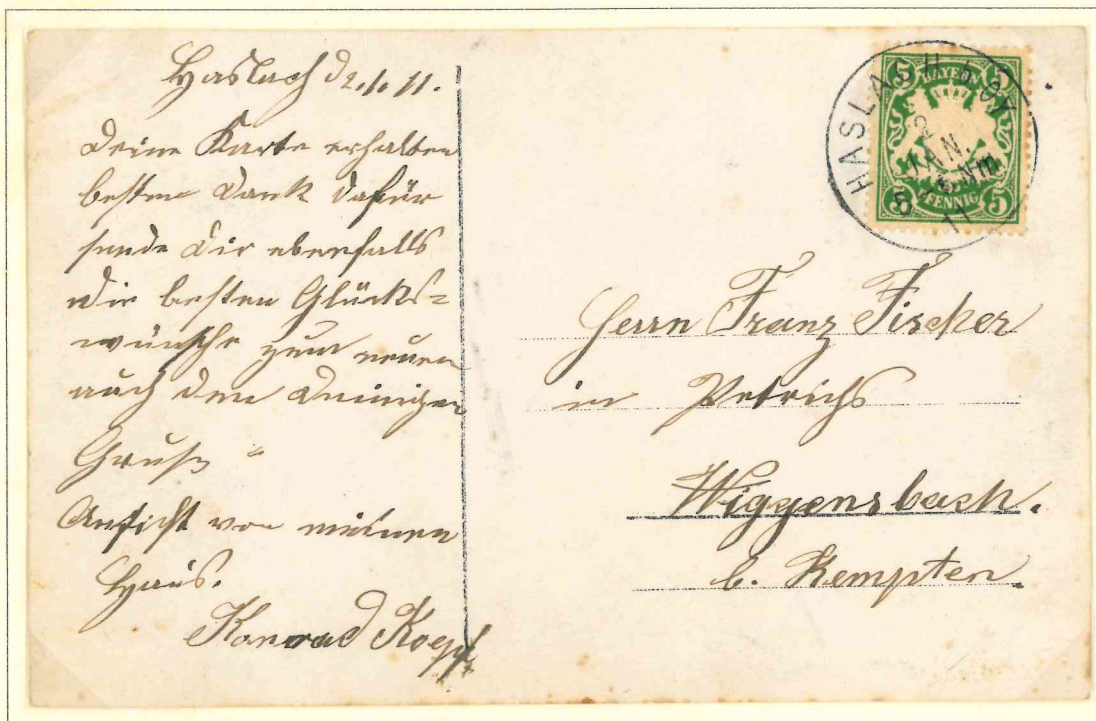 Haslach d 2.1.11.
Deine Karte erhalten
besten Dank dafür
sende Dir ebenfalls
die besten Glücks=
wünsche zum neuen
auch den Deinigen
Gruß
Ansicht von meinem
Haus.
Konrad Kopf
HASLACH b. Oy
2
JAN.
5 Nm
11
BAYERN
5 5
5 5
PFENNIG
Herrn Franz Fischer
in Petrichs
Wiggensbach.
b. Kempten.